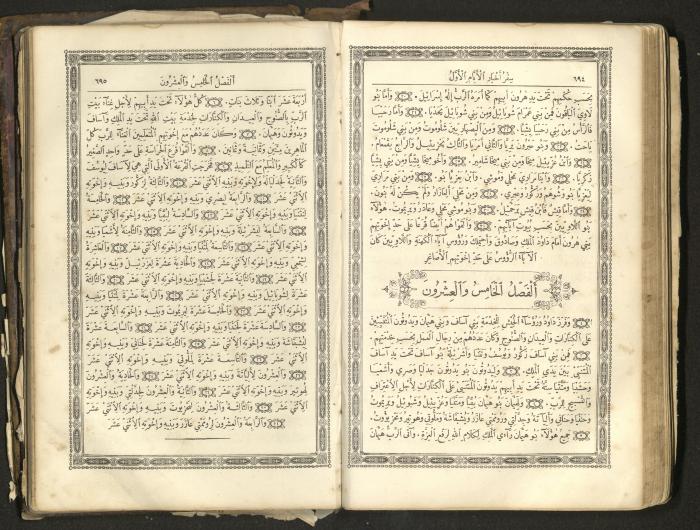 ٦٩٤ سفر أخبار الأيام الأول
بحسب حكمهم تحت يد هرون أبيهم كما أمره الرب إله إسرائيل. وأما بنو
لاوي الباقون فمن بني عمرام شوبائيل ومن بني شوبائيل يحديا. وأما رحبيا
فالرأس من بني رحبيا يشيا. ومن اليصهاريين شلوموت ومن بني شلوموت
ياحث. وبنو حبرون يريا والثاني أمريا والثالث يحزيئيل والرابع يقمعام.
وابن عزيئيل ميخا ومن بني ميخا شامير. وأخو ميخا يشيا ومن بني يشيا
زكريا. وابنا مراري محلي وموشي. وابن يعزيا بنو. ومن بني مراري
ليعزيا بنو وشوهم وزكور وعبري. ومن محلي العازار ولم يكن له بنون.
وأما قيش فابن قيش يرحمئيل. وبنو موشي محلي وعادر ويريموت. هؤلاء
بنو اللاويين بحسب بيوت آبائهم. وألقوا هم أيضا قرعا على حد إخوتهم
بني هرون أمام داود الملك وصادوق وأحيملك ورؤوس آباء الكهنة واللاويين كان
الآباء الرؤوس على حد إخوتهم الأصاغر
الفصل الخامس والعشرون
وفرز داود ورؤساء الجيش للخدمة بني آساف وبني هيمان ويدوتون المتنبئين
على الكنارات والعيدان والصنوج وكان عددهم من رجال العمل بحسب خدمتهم.
فمن بني آساف زكور ويوسف ونتنيا وأشرئيلة بنو آساف تحت يد آساف
المتنبئ بين يدي الملك. وليدوتون بنو يدوتون جدليا وصري وأشعيا
وحشبيا ومتتيا ستة تحت يد أبيهم يدوتون المتنبئ على الكنارات لأجل الاعتراف
والتسبيح للرب. ولهيمان بنو هيمان بقيا ومتنيا وعزيئيل وشبوئيل ويريموت
وحننيا وحناني وأليآتة وجدلتي وروممتي عازر ويشبقاشة وملوتي وهوتير ومحزيوت.
جميع هؤلاء بنو هيمان رآءي الملك لكلام الله لرفع العزة. وآتى الرب هيمان
الفصل الخامس والعشرون ٦٩٥
أربعة عشر ابنا وثلاث بنات. كل هؤلاء تحت يد أبيهم لأجل غناء بيت
الرب بالصنوج والعيدان والكنارات لخدمة بيت الله تحت يد الملك وآساف
ويدوتون وهيمان. وكان عددهم مع إخوتهم المتعلمين الغناء للرب كل
الماهرين مئتين وثمانية وثمانين. وألقوا قرع الحراسة على حد واحد الصغير
كالكبير والمعلم مع التلميذ. فخرجت القرعة الأولى التي هي لآساف ليوسف
والثانية لجدليا له ولإخوته وبنيه الاثني عشر. والثالثة لزكور وبنيه وإخوته
الاثني عشر. والرابعة ليصري وبنيه وإخوته الاثني عشر. والخامسة
لنتنيا وبنيه وإخوته الاثني عشر. والسادسة لبقيا وبنيه وإخوته الاثني عشر
والسابعة ليشرئيلة وبنيه وإخوته الاثني عشر. والثامنة لأشعيا وبنيه
وإخوته الاثني عشر. والتاسعة لمتنيا وبنيه وإخوته الاثني عشر. والعاشرة
لشمعي وبنيه وإخوته الاثني عشر. والحادية عشرة لعزرئيل وبنيه وإخوته
الاثني عشر. والثانية عشرة لحشبيا وبنيه وإخوته الاثني عشر. والثالثة
عشرة لشوبائيل وبنيه وإخوته الاثني عشر. والرابعة عشرة لمتتيا وبنيه
وإخوته الاثني عشر. والخامسة عشرة ليريموت وبنيه وإخوته الاثني عشر
والسادسة عشرة لحننيا وبنيه وإخوته الاثني عشر. والسابعة عشرة
ليشبقاشة وبنيه وإخوته الاثني عشر. والثامنة عشرة لحناني وبنيه وإخوته
الاثني عشر. والتاسعة عشرة لملوتي وبنيه وإخوته الاثني عشر
والعشرون لأليآتة وبنيه وإخوته الاثني عشر. والحادية والعشرون
لهوتير وبنيه وإخوته الاثني عشر. والثانية والعشرون لجدلتي وبنيه وإخوته
الاثني عشر. والثالثة والعشرون لمحزيوت وبنيه وإخوته الاثني عشر
والرابعة والعشرون لروممتي عازر وبنيه وإخوته الاثني عشر